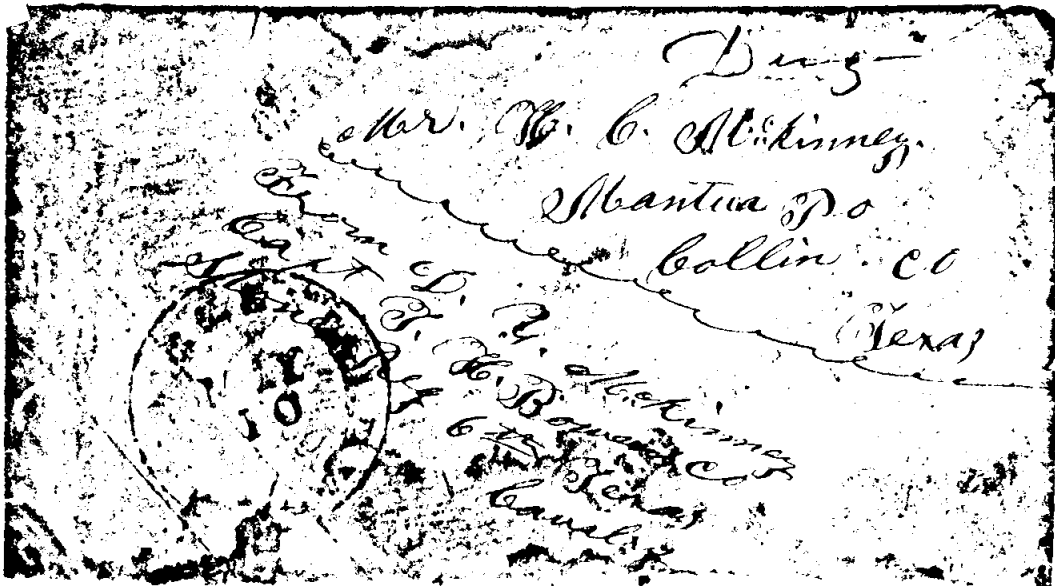 Due 
Mr. H. C. McKinney.
Mantua P o
Collin . Co
Texas
From D. Y. McKinney
Capt J. H. Bowens Co
6th Texas
Cavalry
10